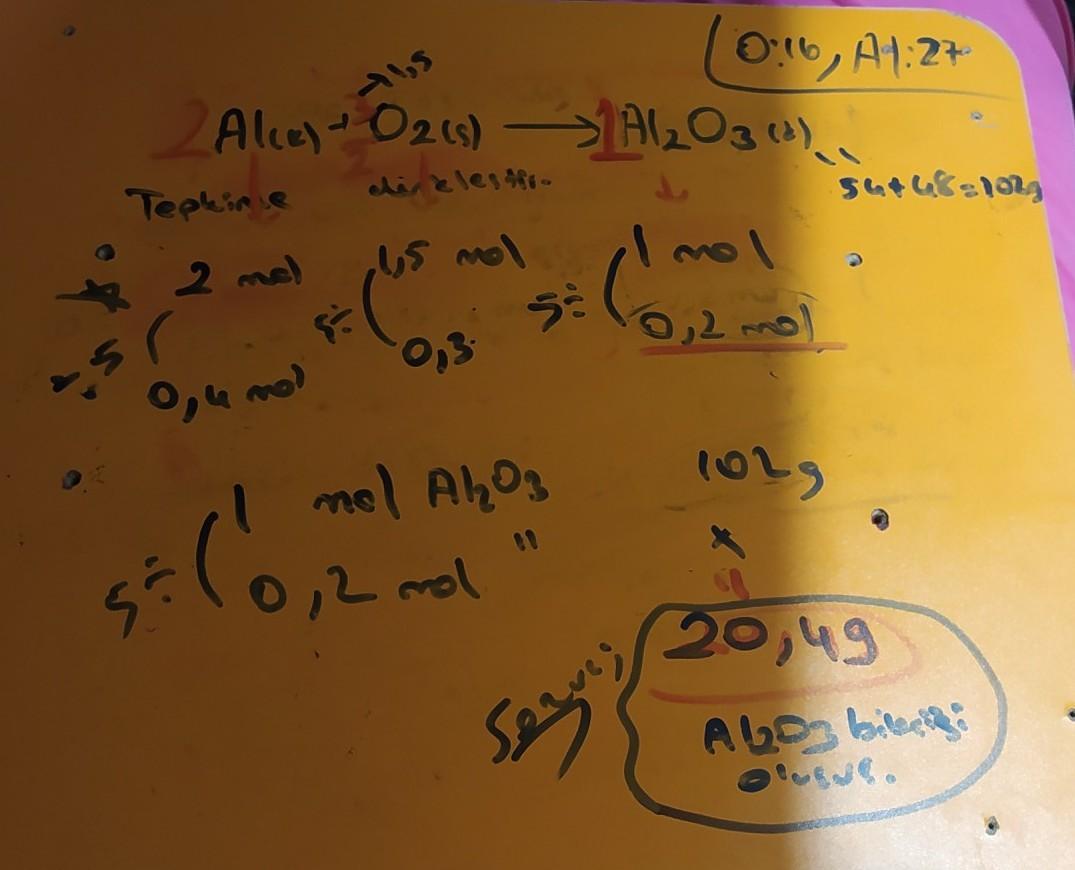 O:16, Al:27
→1,5
2 Al(k) + 3/2 O2(g) → 1 Al2O3(k)
Tepkime denkleştir.
54+48=102g
2 mol 1,5 mol 1 mol
0,4 mol 0,3 0,2 mol
1 mol Al2O3 102g
5÷
0,2 mol " x
20,4g
Sonuç;
Al2O3 bileşiği
oluşur.